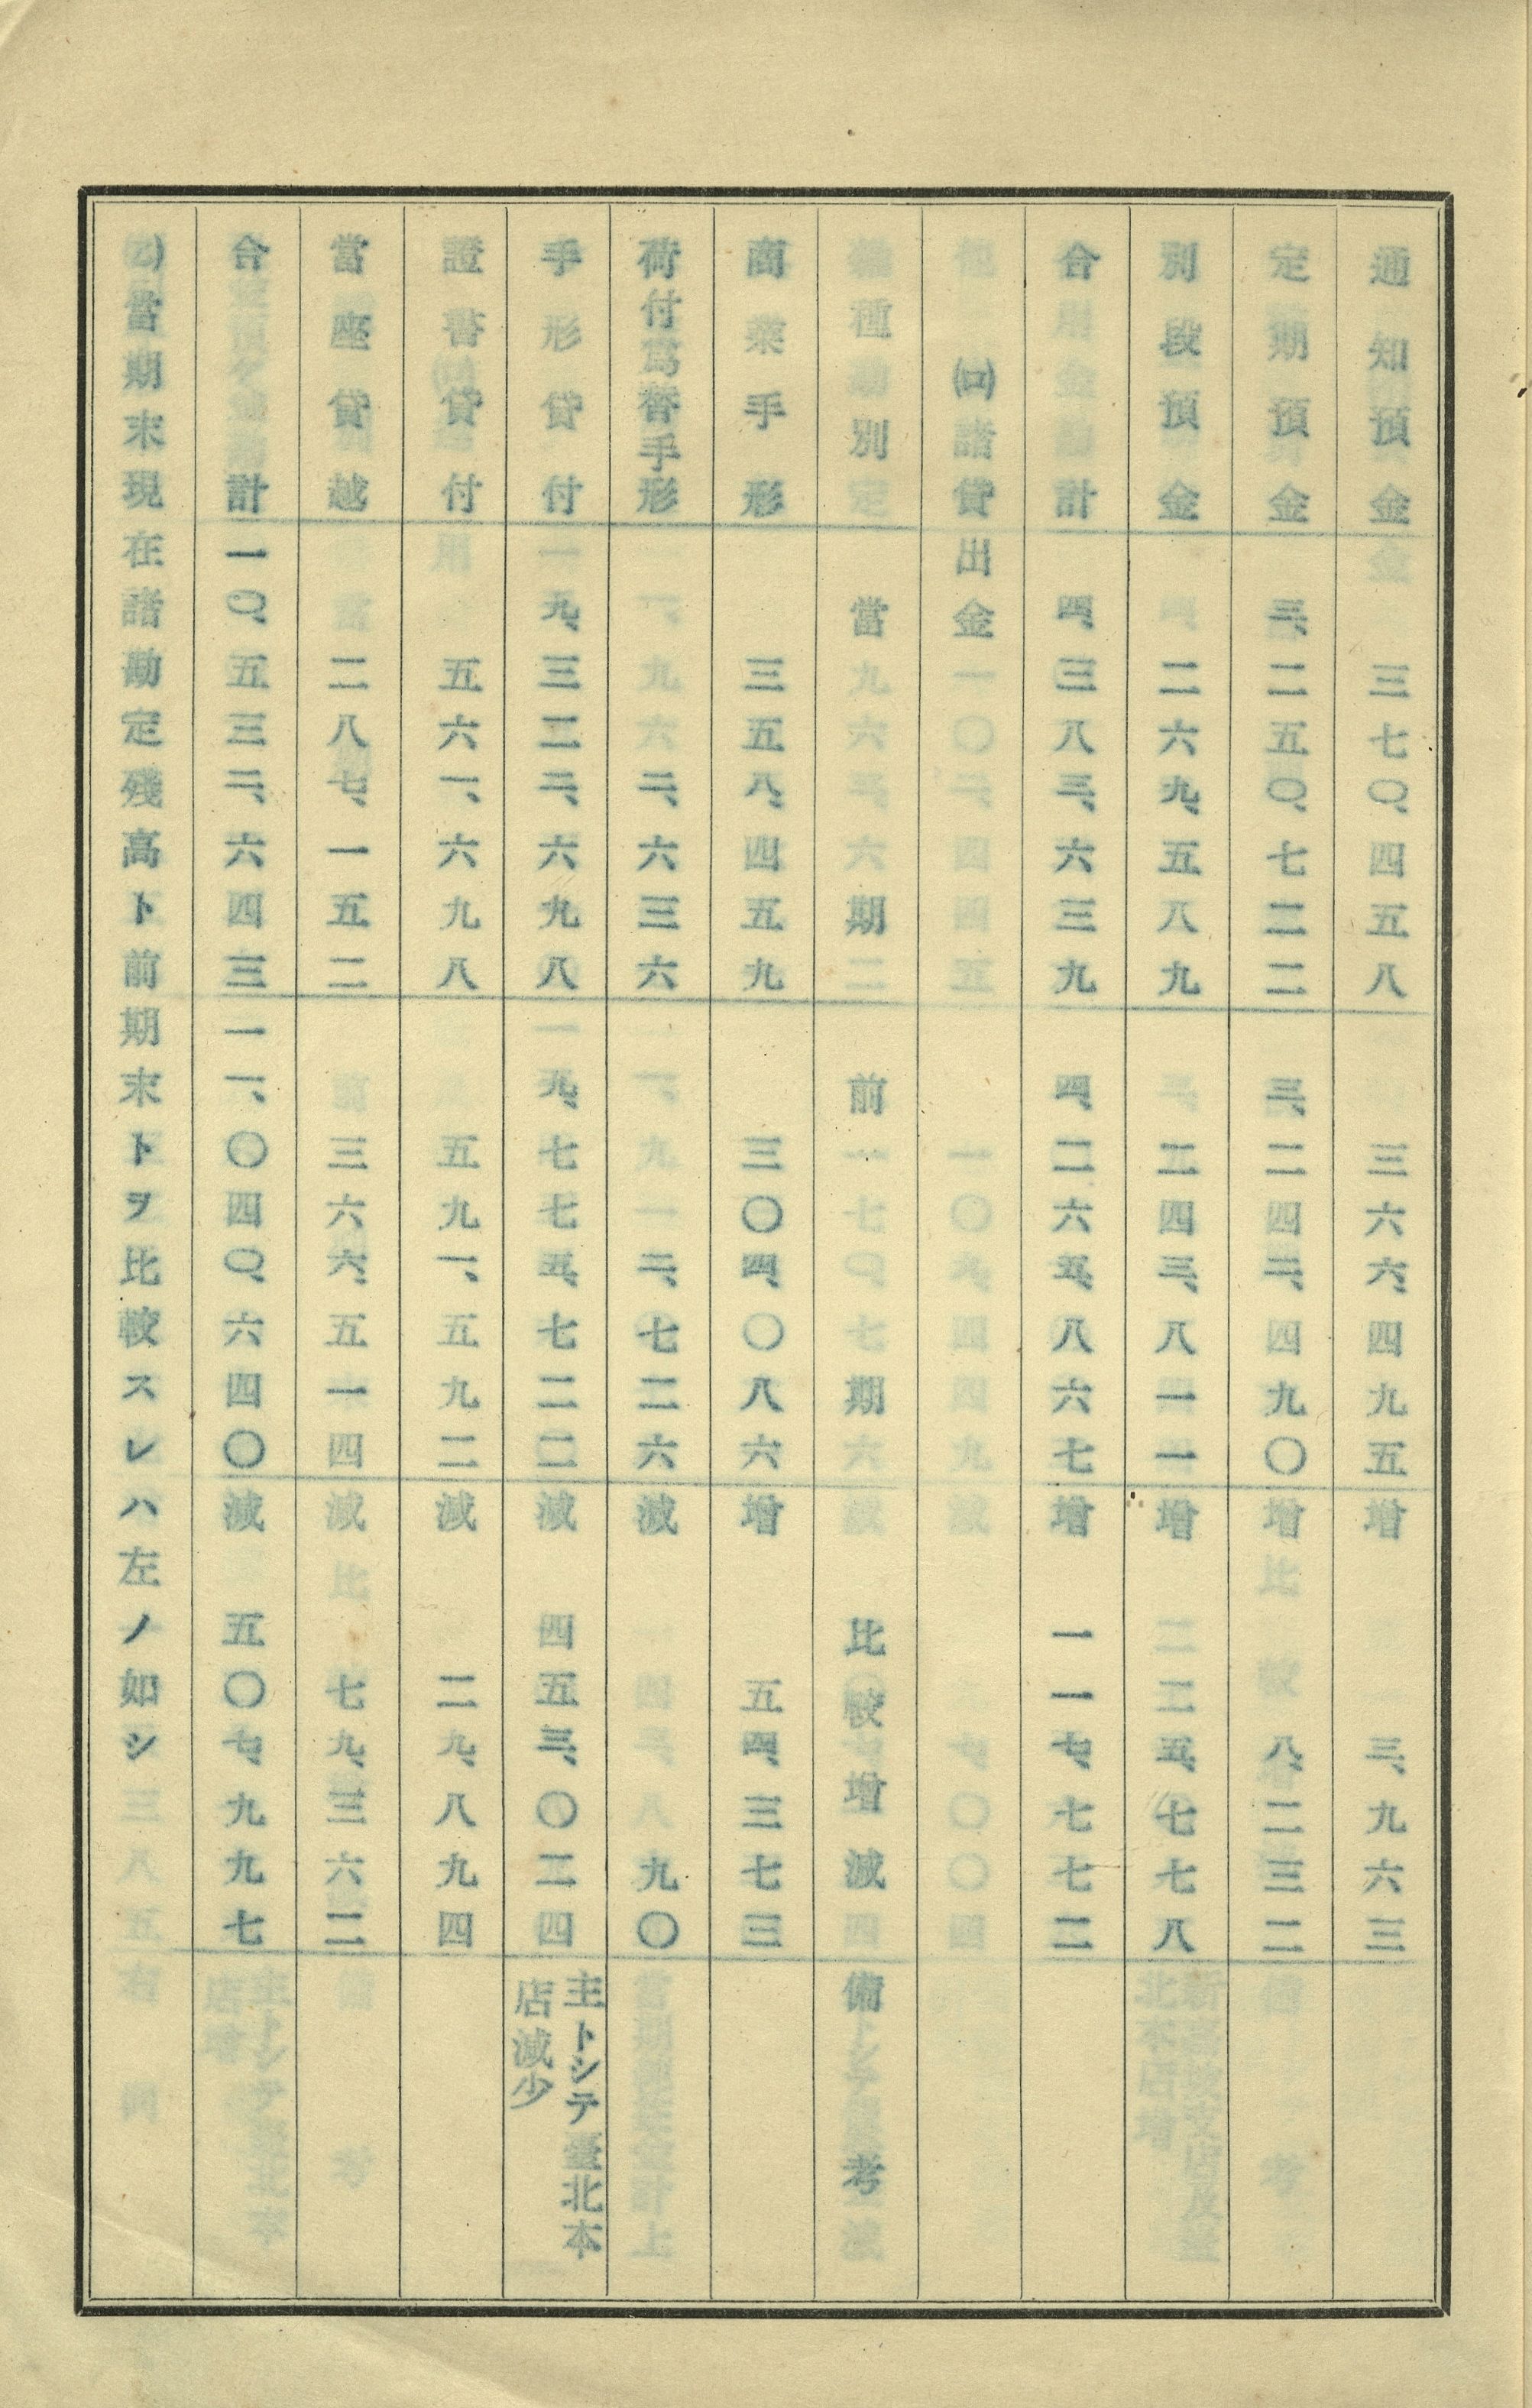 通知預金 三七〇、四五八 三六六、四九五 增 三、九六三
定期預金 三、二五〇、七二二 三、二四二、四九〇 增 八、二三二
別段預金 二六九、五八九 二四三、八一一 增 二五、七七八
合計 四、三八三、六三九 四、二六五、八六七 增 一一七、七七二
(ロ)諸貸出金
種別 當期 前期 比較增減 備考
商業手形 三五八、四五九 三〇四、〇八六 增 五四、三七三
荷付爲替手形 二、六三六 二、七二六 減 九〇
手形貸付 九、三二二、六九八 九、七七五、七二二 減 四五三、〇二四 主トシテ臺北本
店減少
證書貸付 五六一、六九八 五九一、五九二 減 二九、八九四
當座貸越 二八七、一五二 三六六、五一四 減 七九、三六二
合計 一〇、五三二、六四三 一一、〇四〇、六四〇 減 五〇七、九九七
當期末現在諸勘定殘高ト前期末トヲ比較スレハ左ノ如シ